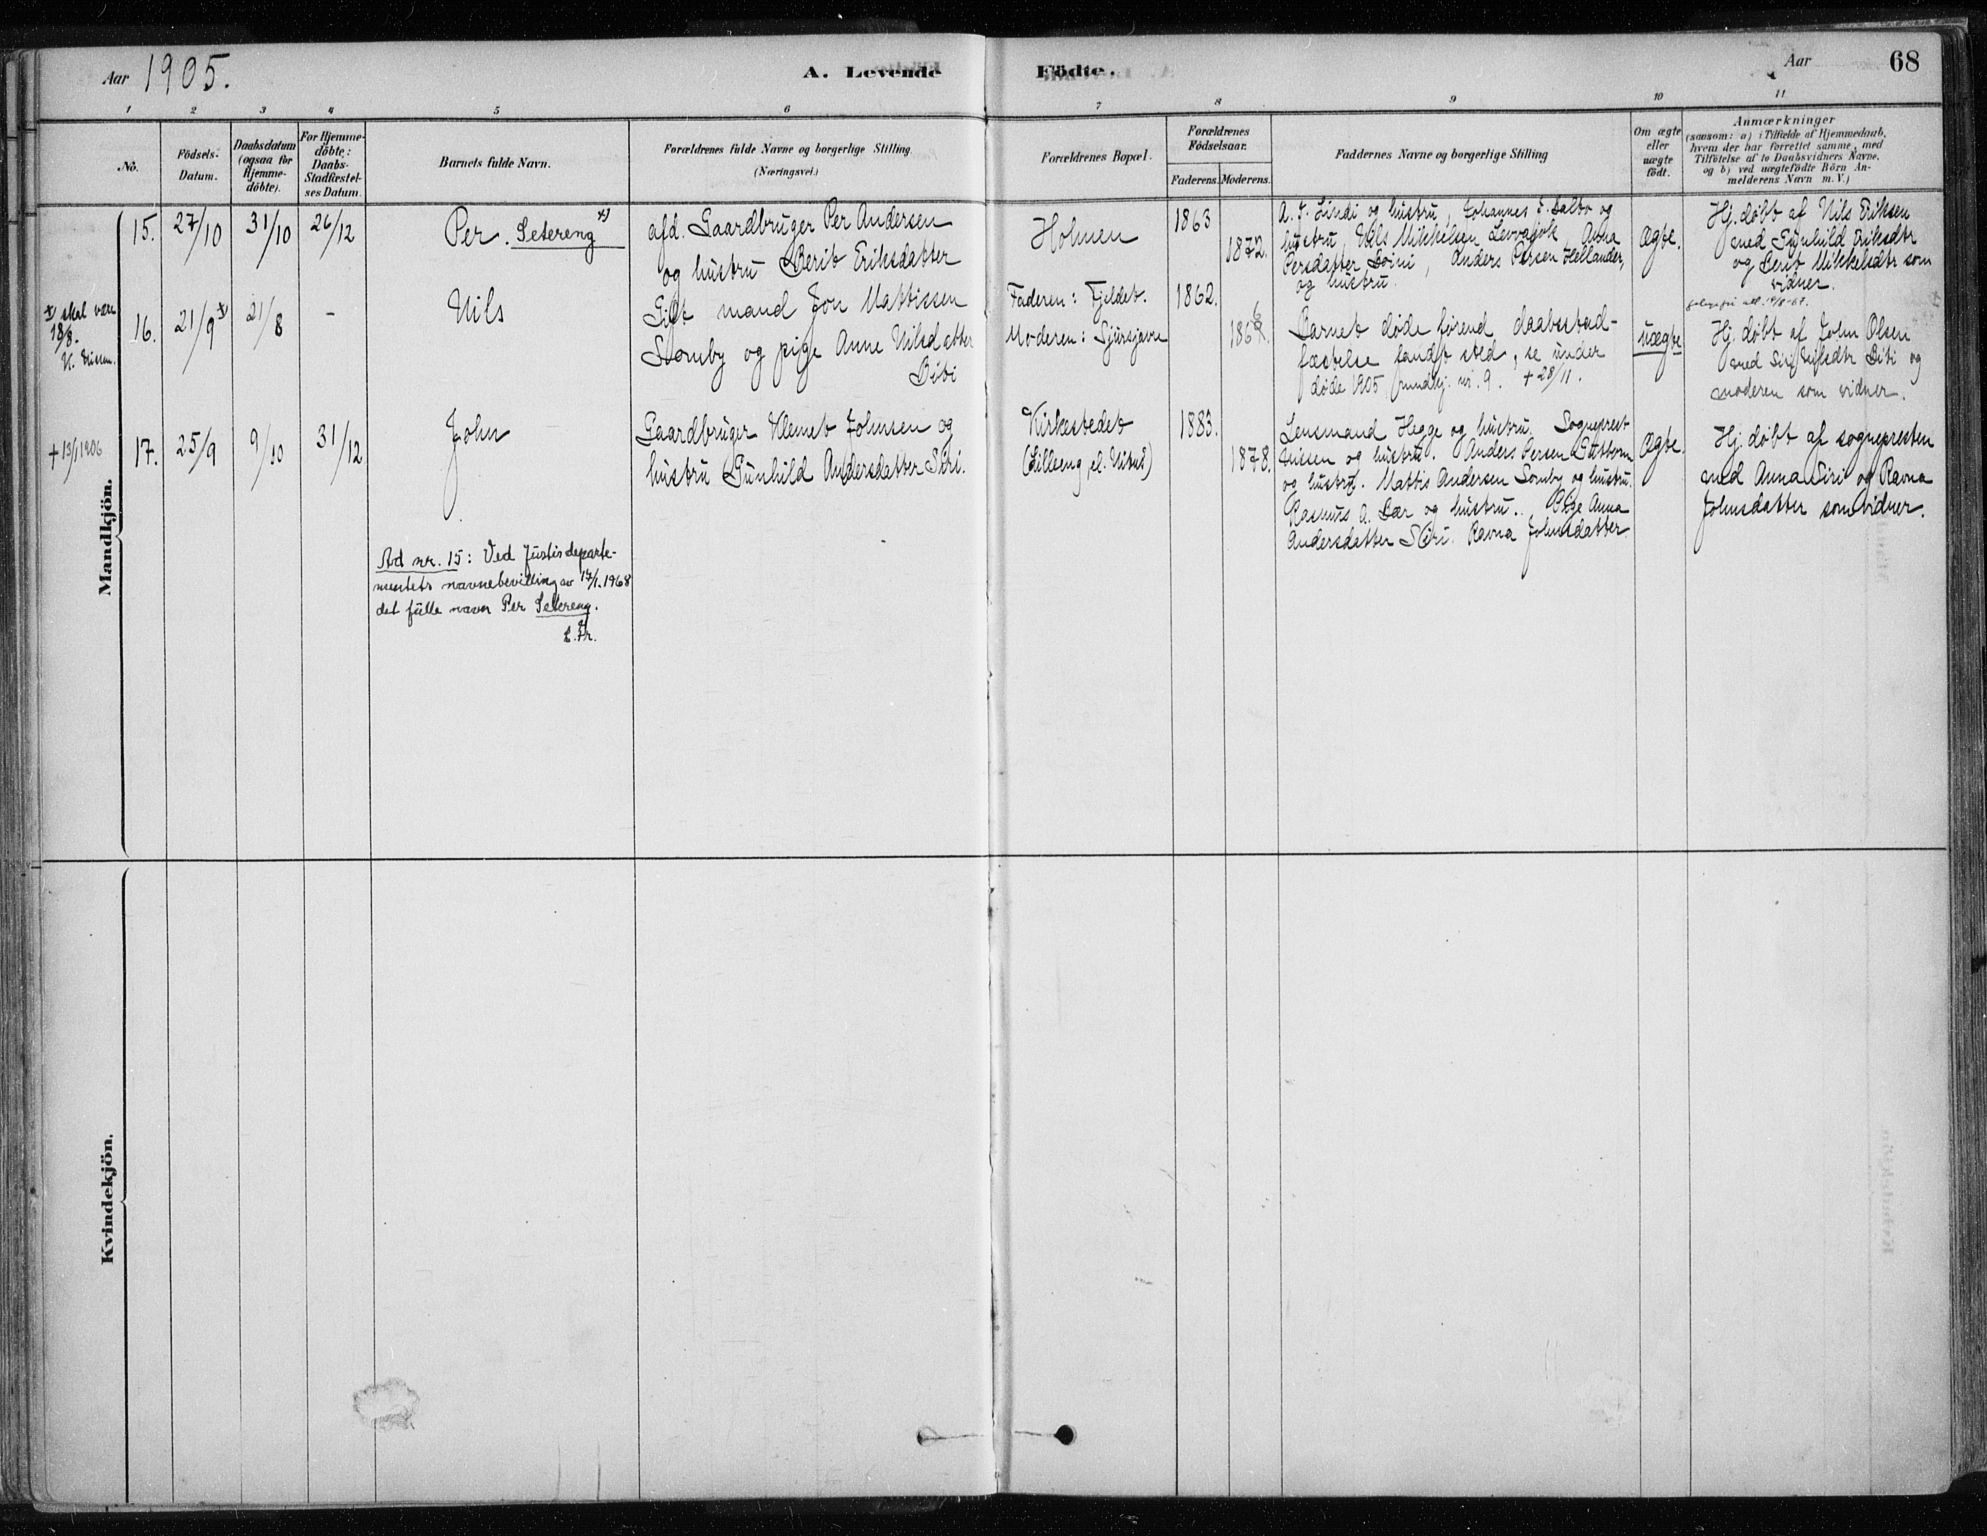 Aar 1905.
A. Levende Födte.
Aar
68
1 2 3 4 5 6 7 8 9 10 11
No.
Födsels-
Datum.
Daabsdatum
(ogsaa for
Hjemme-
döbte).
For Hjemme-
döbte:
Daabs-
Stadfæstel-
ses Datum.
Barnets fulde Navn.
Forældrenes fulde Navne og borgerlige Stilling
(Næringsvei.)
Forældrenes Bopæl.
Forældrenes
Födselsaar.
Faderens. Moderens.
Faddernes Navne og borgerlige Stilling
Om ægte
eller
uægte
födt.
Anmærkninger
(saasom: a) i Tilfælde af Hjemmedaab,
hvem der har forrettet samme, med
Tilföielse af to Daabsvidners Navne,
og b) ved uægtefödte Börn An-
melderens Navn m. V.)
Mandkjön.
15. 27/10 31/10 26/12
Per. Setereng x)
afd. Gaardbruger Per Andersen
og hustru Berit Eriksdatter
Holmen
1863
1872.
A. J. Lindi og hustru, Johannes J. Balto og
hustru, Nils Mikkelsen Levvajok, Anna
Persdatter Boini, Anders Persen Hellander,
og hustru.
Ægte.
Hj. døbt af Nils Eriksen
med Gunhild Eriksdtr
og Berit Mikkelsdtr som
vidner.
x) skal være
18/8.
16. 21/9 x) 21/8 -
Nils
Gift mand Jon Mattissen
Somby og pige Anne Nilsdatter
Biti
Faderen: Fjeldet.
Moderen: Sjursjavre
1862.
186
Barnet døde førend daabsstad-
fæstelse fandt sted, se under
døde 1905 mandkj. nr. 9. + 28/11.
uægte
Hj. døbt af John Olsen
med Siri Nilsdtr Biti og
moderen som vidner.
+ 13/1 1906
17. 25/9 9/10 31/12
John
Gaardbruger Klemet Johnsen og
hustru Gunhild Andersdatter Siri.
Kirkestedet
(Lilleeng el. Nitus)
1883.
1878.
Lensmand Hegge og hustru. Sogneprest
Nissen og hustru. Anders Persen Guttorm
og hustru. Mattis Andersen Somby og hustru.
Rasmus A. Bær og hustru. Pige Anna
Andersdatter Siri. Ravna Johnsdatter
Ægte.
Hj. døbt af sognepresten
med Anna Siri og Ravna
Johnsdatter som vidner.
Ad nr. 15: Ved Justisdeparte-
mentets navnebevilling av 17/1.1968
det fulle navn Per Setereng.
Kvindekjön.